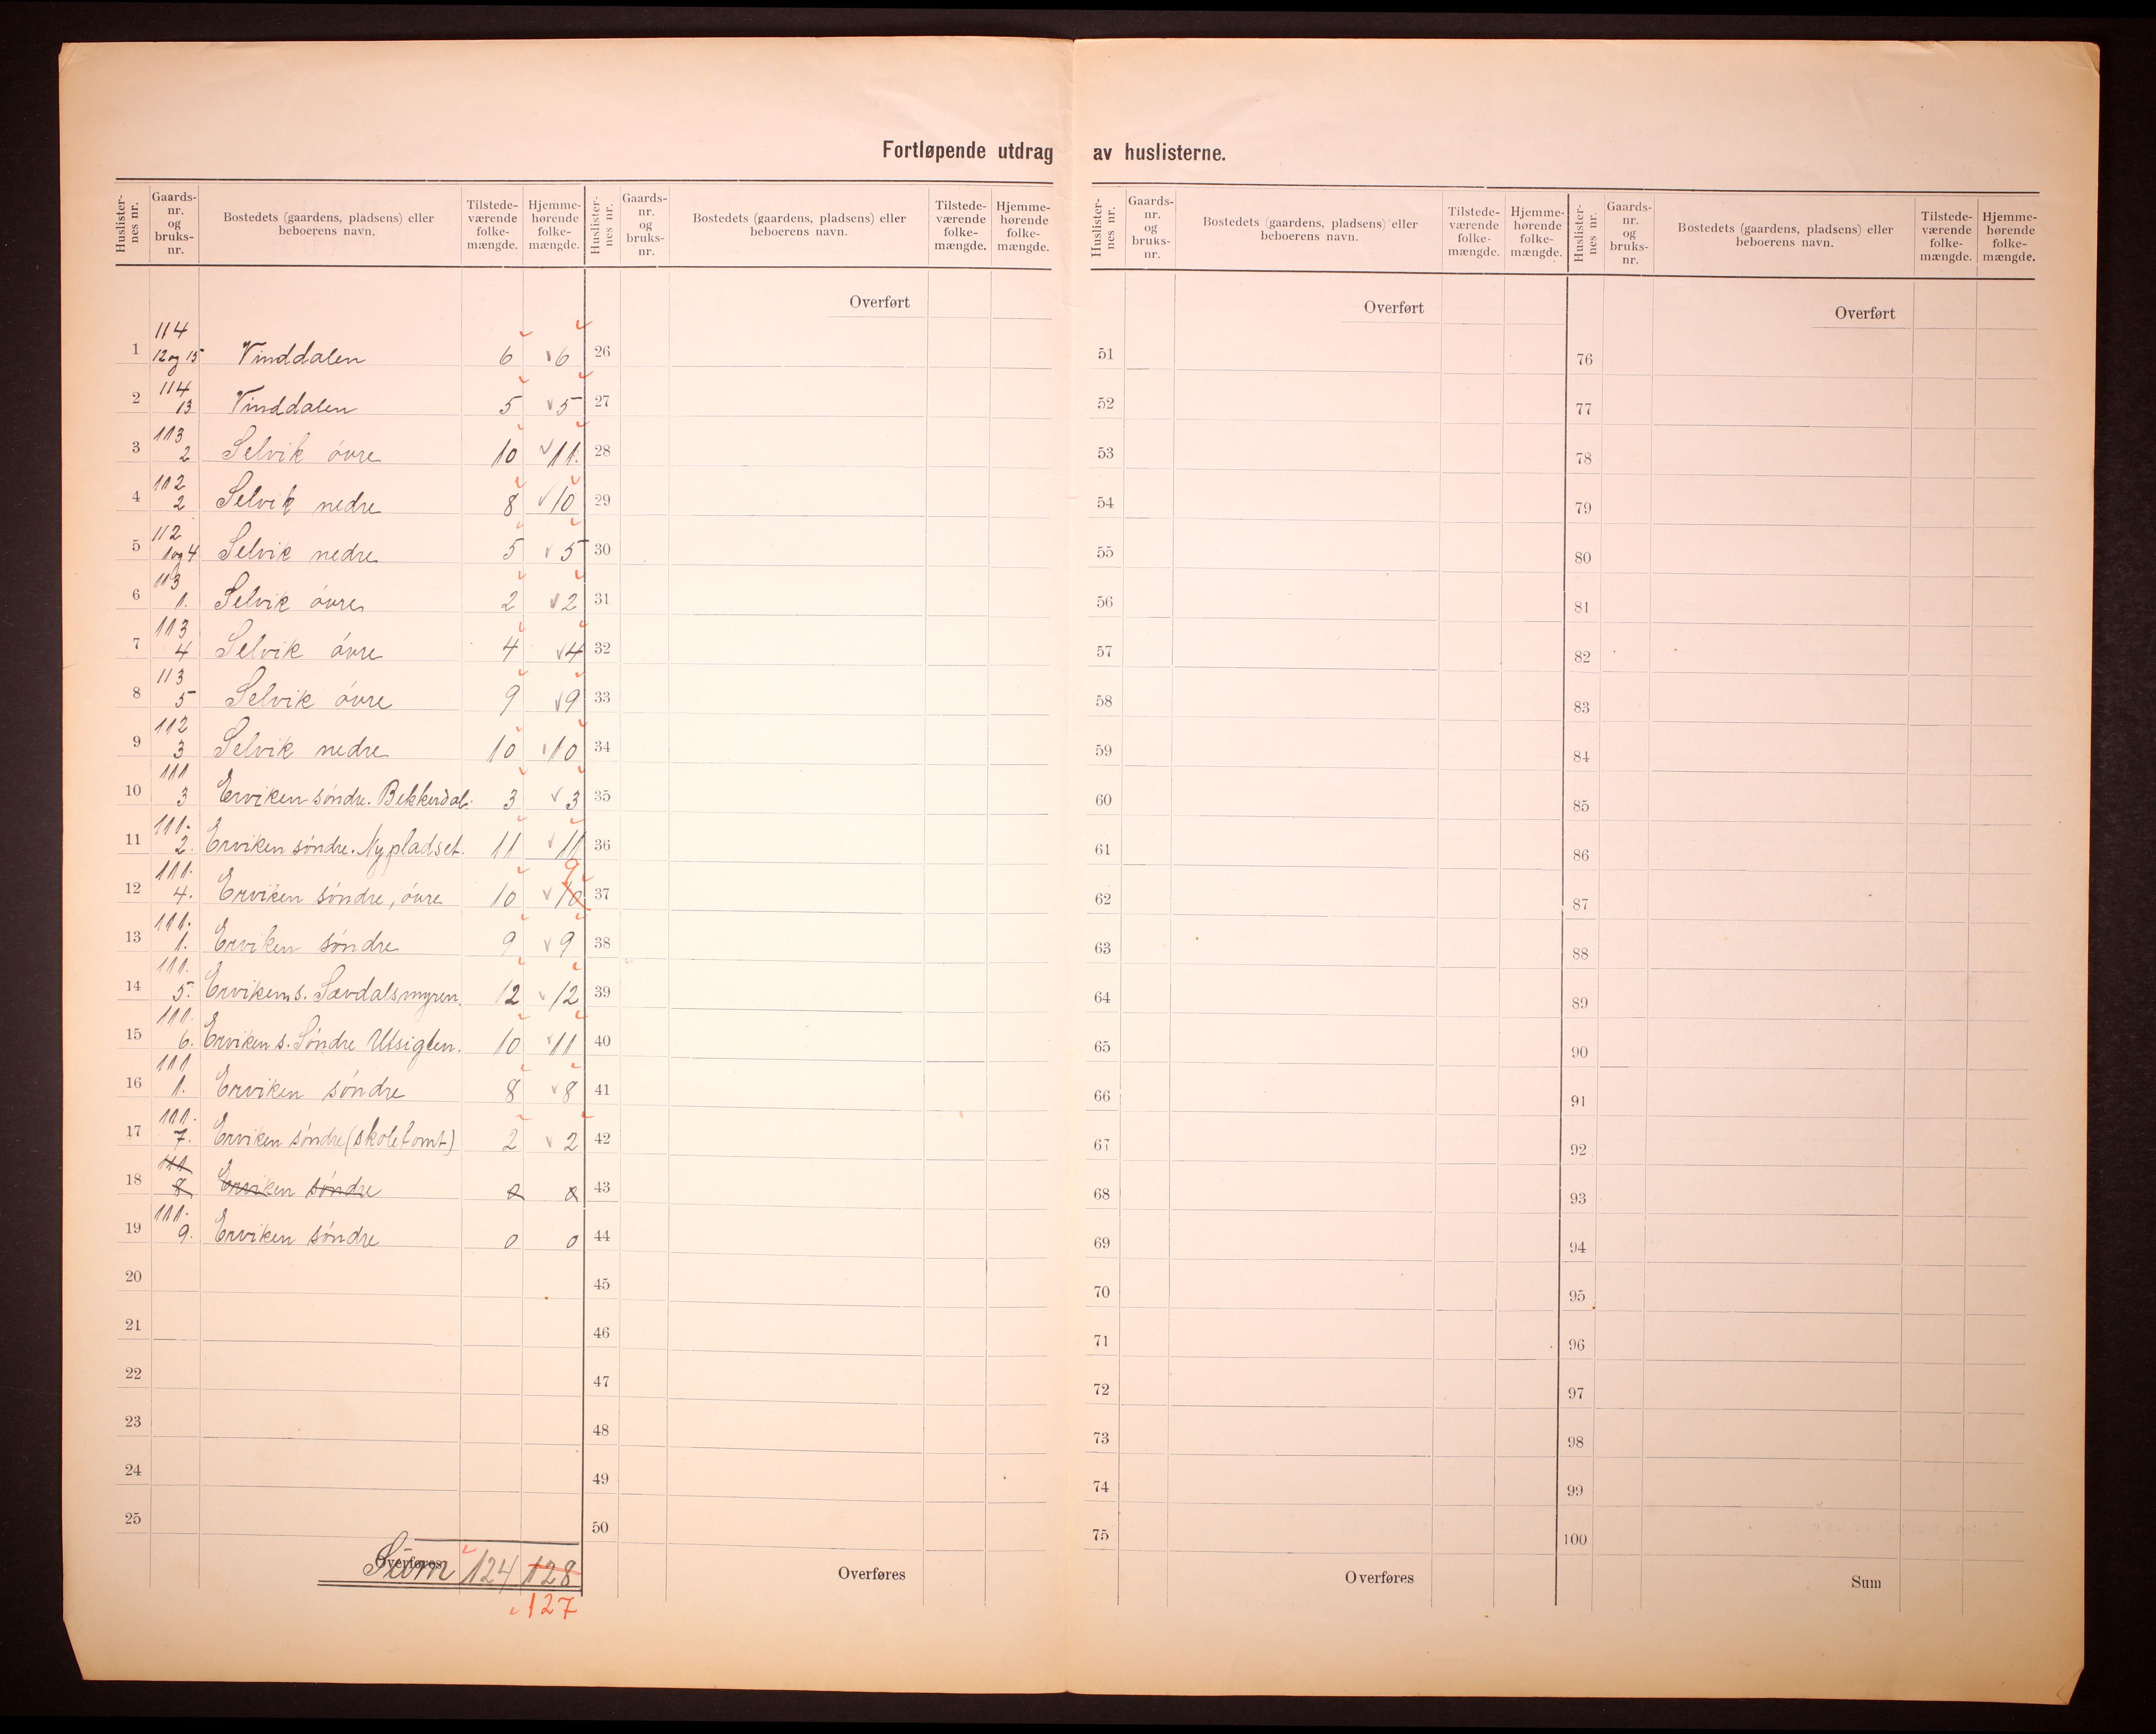 Fortløpende utdrag av huslisterne.
Huslister-nes nr. Gaards-nr. og bruks-nr. Bostedets (gaardens, pladsens) eller beboerens navn. Tilstede-værende folke-mængde. Hjemme-hørende folke-mængde.
Huslister-nes nr. Gaards-nr. og bruks-nr. Bostedets (gaardens, pladsens) eller beboerens navn. Tilstede-værende folke-mængde. Hjemme-hørende folke-mængde.
Huslister-nes nr. Gaards-nr. og bruks-nr. Bostedets (gaardens, pladsens) eller beboerens navn. Tilstede-værende folke-mængde. Hjemme-hørende folke-mængde.
Huslister-nes nr. Gaards-nr. og bruks-nr. Bostedets (gaardens, pladsens) eller beboerens navn. Tilstede-værende folke-mængde. Hjemme-hørende folke-mængde.
1 114 12 og 15 Vinddalen 6 6
2 114 13 Vinddalen 5 5
3 113 2 Selvik óvre 10 11.
4 112 2 Selvik nedre 8 10
5 112 1 og 4 Selvik nedre 5 5
6 113 1. Selvik óvre 2 2
7 113 4 Selvik óvre 4 4
8 113 5 Selvik óvre 9 9
9 112 3 Selvik nedre 10 10
10 111 3 Erviken sóndre. Bekkerdal. 3 3
11 111. 2. Erviken sóndre. Nypladset. 11 11
12 111. 4. Erviken sóndre, óvre 10 10 9
13 111. 1. Erviken sóndre 9 9
14 111. 5. Erviken s. Sævdalsmyren. 12 12
15 111. 6. Erviken s. Sóndre Utsigten. 10 11
16 111 1. Erviken sóndre 8 8
17 111. 7. Erviken sóndre (skoletomt) 2 2
18 111 8 Erviken sóndre 0 0
19 111. 9. Erviken sóndre 0 0
20
21
22
23
24
25
Overføres Sum 124 128
127
Overført
26
27
28
29
30
31
32
33
34
35
36
37
38
39
40
41
42
43
44
45
46
47
48
49
50
Overføres
Overført
51
52
53
54
55
56
57
58
59
60
61
62
63
64
65
66
67
68
69
70
71
72
73
74
75
Overføres
Overført
76
77
78
79
80
81
82
83
84
85
86
87
88
89
90
91
92
93
94
95
96
97
98
99
100
Sum